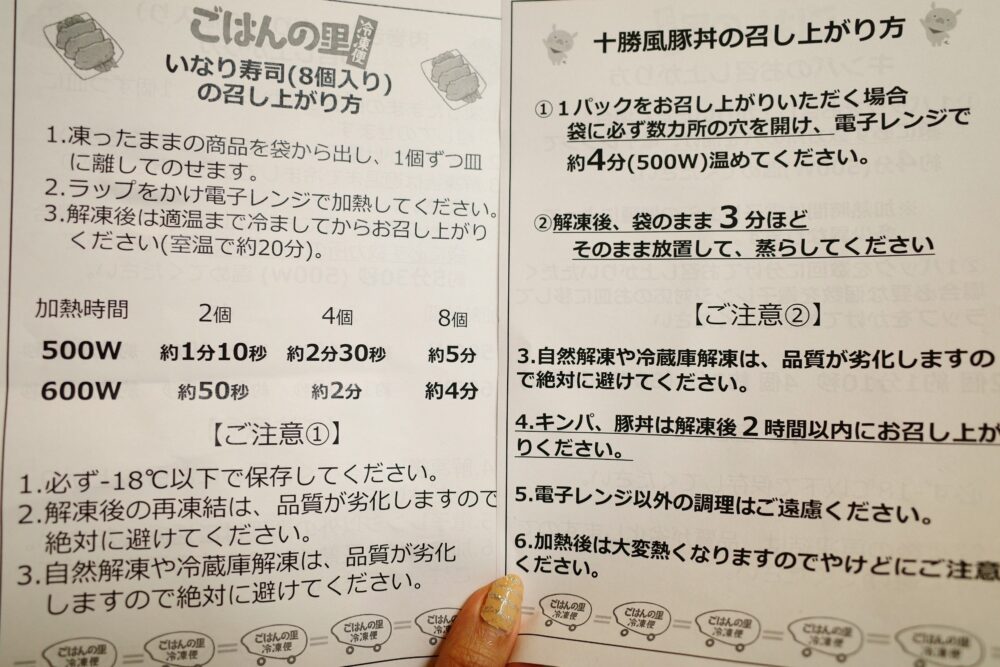 ごはんの里 冷凍便
いなり寿司(8個入り)
の召し上がり方
1.凍ったままの商品を袋から出し、1個ずつ皿
に離してのせます。
2.ラップをかけ電子レンジで加熱してください。
3.解凍後は適温まで冷ましてからお召し上がり
ください(室温で約20分)。
加熱時間 2個 4個 8個
500W 約1分10秒 約2分30秒 約5分
600W 約50秒 約2分 約4分
【ご注意①】
1.必ず-18℃以下で保存してください。
2.解凍後の再凍結は、品質が劣化しますので
絶対に避けてください。
3.自然解凍や冷蔵庫解凍は、品質が劣化
しますので絶対に避けてください。
ごはんの里
冷凍便
ごはんの里
冷凍便
ごはんの里
冷凍便
ごはんの里
冷凍便
十勝風豚丼の召し上がり方
①１パックをお召し上がりいただく場合
袋に必ず数カ所の穴を開け、電子レンジで
約4分(500W)温めてください。
②解凍後、袋のまま３分ほど
そのまま放置して、蒸らしてください
【ご注意②】
3.自然解凍や冷蔵庫解凍は、品質が劣化しますの
で絶対に避けてください。
4.キンパ、豚丼は解凍後２時間以内にお召し上が
りください。
5.電子レンジ以外の調理はご遠慮ください。
6.加熱後は大変熱くなりますのでやけどにご注意
ください。
ごはんの里
冷凍便
ごはんの里
冷凍便
ごはんの里
冷凍便
ごはんの里
冷凍便
ごはんの里
冷凍便